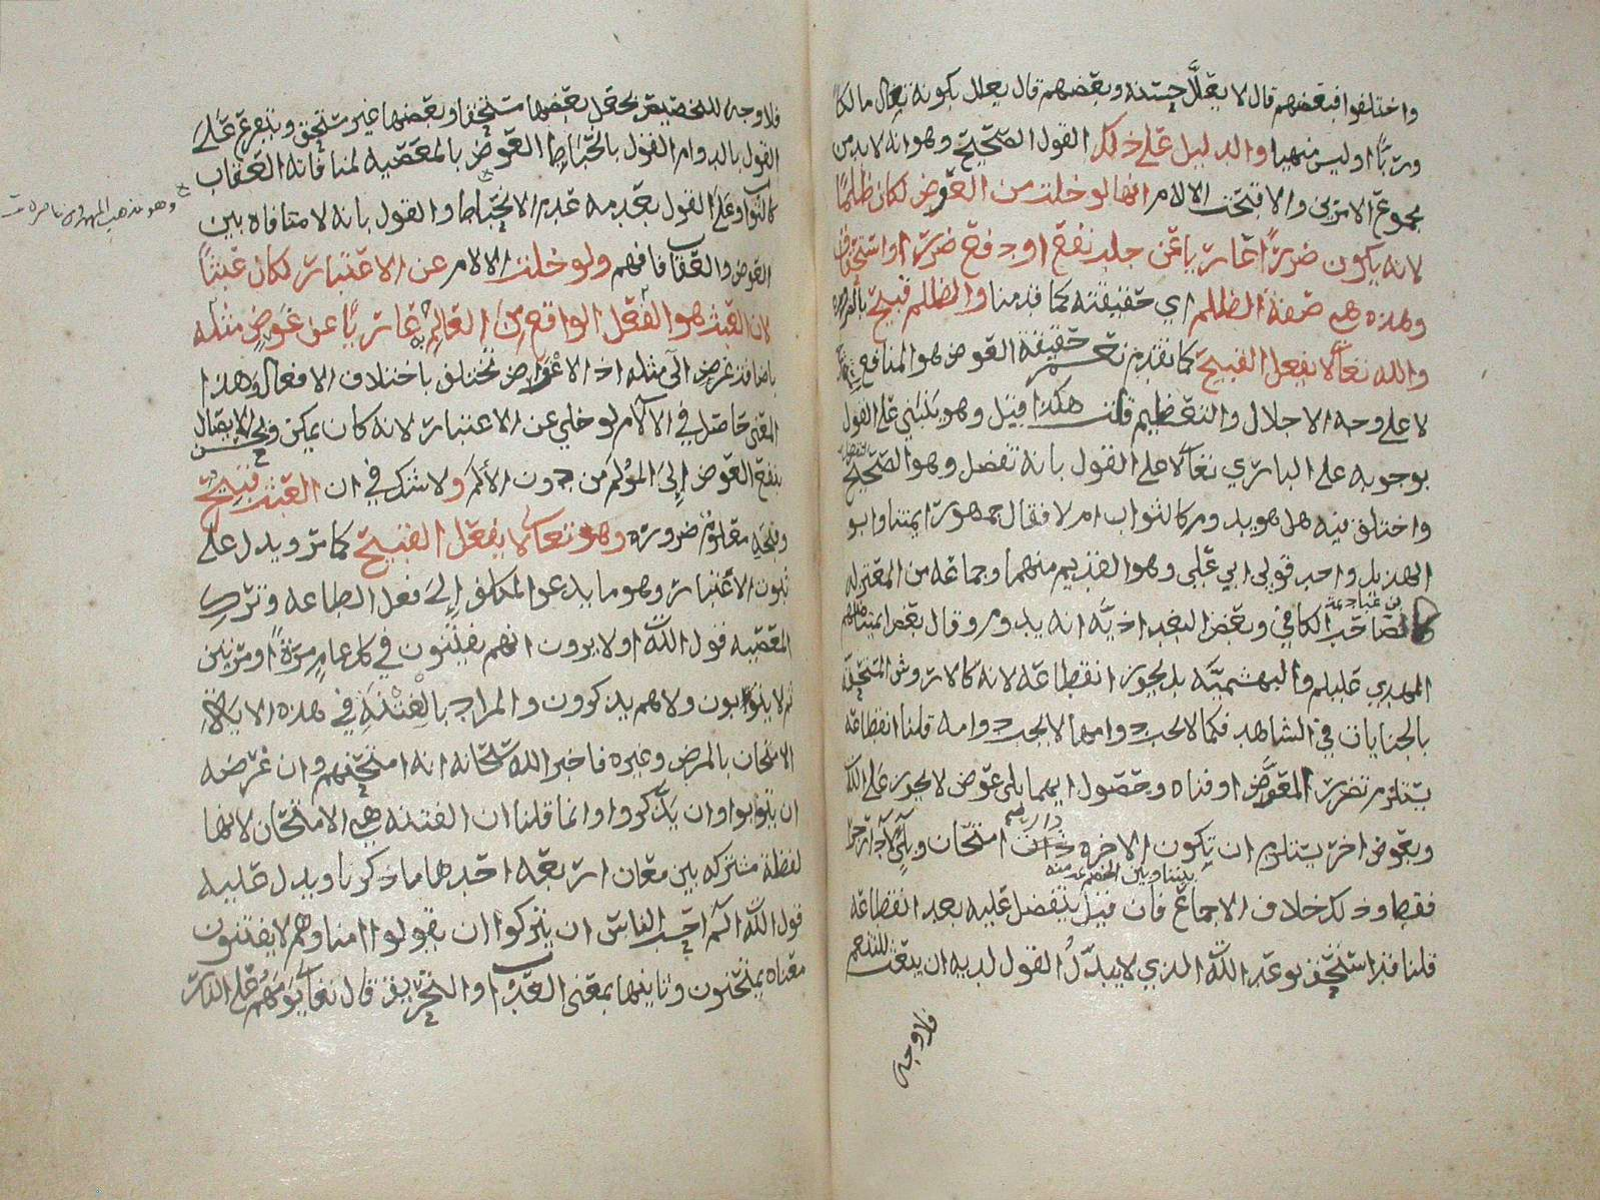 واختلفوا فبعضهم قال لا يعلل حسنه وبعضهم قال يعلل بكونه تعالى مالكا
وربا اوليس منهيا والدليل على ذلك القول الصحيح وهو انه لا بد من
مجموع الامرين والا قبحت الالام انها لو خلت من العوض لكان ظلما
لانه يكون ضررا عاريا عن جلب نفع او دفع ضرر او استحقاق
وهذه هي صفة الظلم اي حقيقته كما قدمنا والظلم قبيح
والله تعالى لا يفعل القبيح كما تقدم نعم حقيقة العوض هو المنافع
لا على وجه الاجلال والتعظيم قلت هكذا قيل وهو يبتني على القول
بوجوبه على الباري تعالى لا على القول بانه تفضل وهو الصحيح
واختلف فيه هل هو يدوم كالثواب ام لا فقال جمهور ائمتنا وابو
الهذيل واحد قولي ابي علي وهو القديم منهما وجماعه من المعتزله
كالصاحب الكافي وبعض البغداديه انه يدوم وقال بعض ائمتنا
بن عباد
المهدي عليلم والبهشميه بل يجوز انقطاعه لانه كالاروش المستحقه
بالجنايات في الشاهد فكما لا يجب دوامها لا يجب دوامه قلنا انقطاعه
يستلزم تضرر المعوض او فناه وحصول ايهما بلى عوض لا يجوز على الله
وبعوض اخر يستلزم ان تكون الاخره دار امتحان وبلاء لا دار جزا
بيننا وبين الخصم
فقط وذلك خلاف الاجماع فان قيل يتفضل عليه بعد انقطاعه
قلنا قد استحق بوعد الله الذي لا يبدل القول لديه ان يبعث للتنعم
فلا وجه
فلا وجه للتخصيص بجعل بعضها مستحقا وبعضها غير مستحق ويتفرع على
القول بالدوام القول بانحباط العوض بالمعصيه لمنافاته العقاب
كالثواب وعلى القول بعدمه عدم الانحباط والقول بانه لا منافاه بين
وهو مذهب المهدي
العوض والعقاب فافهم ولو خلت الالام عن الاعتبار لكان عبثا
لان العبث هو الفعل الواقع من العالم به عاريا عن غرض مثله
باضافة غرض الى مثله اذ الاغراض تختلف باختلاف الافعال وهذا
المعنى حاصل في الالام لو خلي عن الاعتبار لانه كان يمكن ويحسن الايصال
بنفع العوض الى المؤلم من دون الالم ولا شك في ان العبث قبيح
وقبحه معلوم ضروره وهو تعالى لا يفعل القبيح كما مر ويدل على
ثبوت الاعتبار وهو ما يدعو المكلف الى فعل الطاعه وترك
المعصيه قول الله اولا يرون انهم يفتنون في كل عام مرة او مرتين
ثم لا يتوبون ولا هم يذكرون والمراد بالفتنة في هذه الاية
الامتحان بالمرض وغيره فاخبر الله سبحانه انه امتحنهم وان غرضه
ان يتوبوا وان يذكروا وانما قلنا ان الفتنه هي الامتحان لانها
لفظة مشتركه بين معان اربعه احدها ما ذكرنا ويدل عليه
قول الله الم احسب الناس ان يتركوا ان يقولوا امنا وهم لا يفتنون
معناه يمتحنون وثانيها بمعنى العذاب والتحريق قال تعالى يوم هم على النار